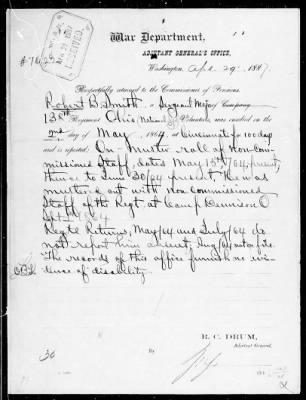 War Department,
ADJUTANT GENERAL'S OFFICE,
Washington, Apl 29, 1887.
Respectfully returned to the Commissioner of Pensions.
Robert B. Smith, a Sergeant Major Company
138th Regiment Ohio National Gd Volunteers, was enrolled on the
2nd day of May, 1864, at Cincinnati for 100 days
and is reported: On Muster roll of Non-Com-
missioned Staff, dated May 15th/64, present,
thence to June 30/64 present. He was
mustered out with Non Commissioned
Staff of the Regt. at Camp Dennison O
Sept 1864
Regtl Returns, May/64 and July/64 do
not report him absent, Aug/64 not on file.
The records of this office furnish no evi-
dence of disability.
R. C. DRUM,
Adjutant General.
By